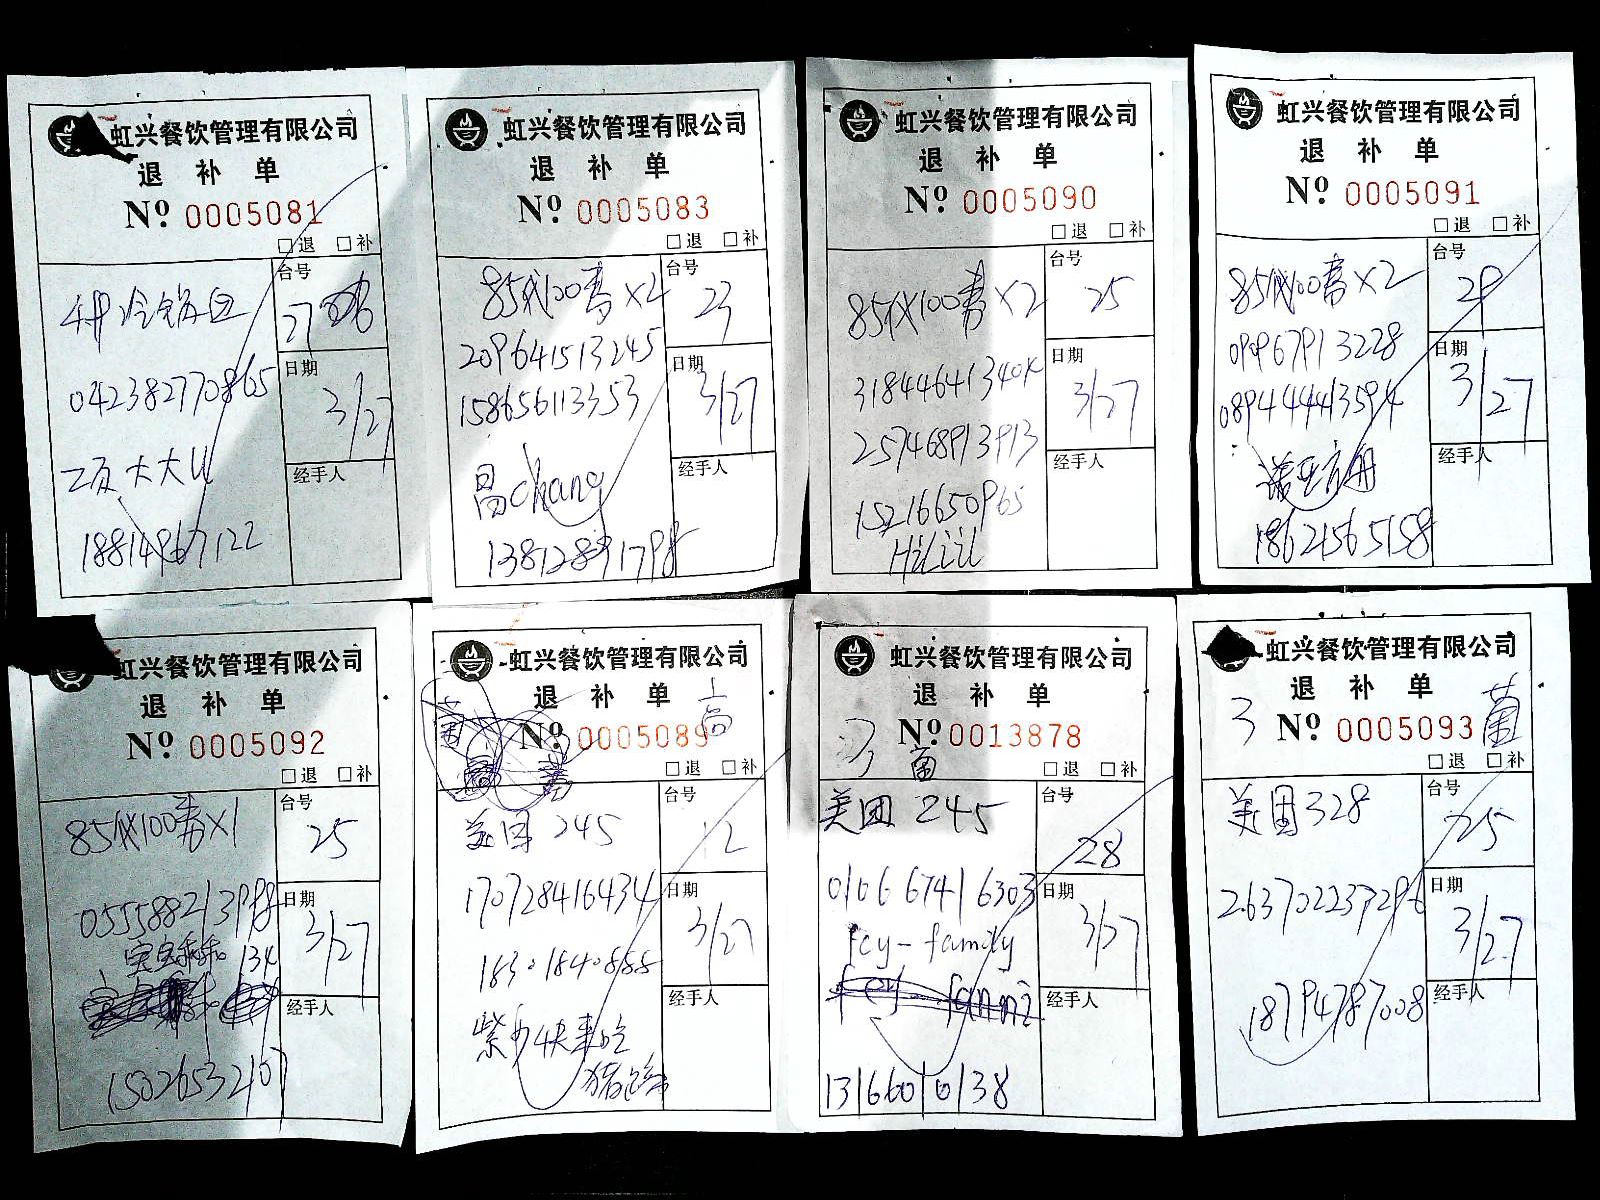 虹兴餐饮管理有限公司
退补单
Nº 0005081
□退 □补
台号
27
冷锅
日期
3/27
042382770865
大大U
经手人
18814967122
虹兴餐饮管理有限公司
退补单
Nº 0005083
□退 □补
台号
23
85代100券×2
209641513245
日期
3/27
158656113353
经手人
昌Chang
虹兴餐饮管理有限公司
退补单
Nº 0005090
□退 □补
台号
25
85代100券×2
日期
3/27
257468913913
经手人
15216650965
虹兴餐饮管理有限公司
退补单
Nº 0005091
□退 □补
台号
29
85代100券×2
090967913228
日期
3/27
089444413594
经手人
诺亚方舟
18621565158
虹兴餐饮管理有限公司
退补单
Nº 0005092
□退 □补
台号
25
85代100券×1
日期
3/27
055588213998
宝宝乖乖 134
经手人
15026532107
虹兴餐饮管理有限公司
退补单
上高
Nº 0005089
□退 □补
台号
12
美团 245
日期
3/27
170728416434
18301840888
经手人
紫 快来吃
虹兴餐饮管理有限公司
退补单
Nº 0013878
□退 □补
台号
28
美团 245
日期
3/27
010667416303
fcy-family
经手人
13166010138
虹兴餐饮管理有限公司
退补单
3 Nº 0005093
□退 □补
台号
25
美团 328
日期
3/27
263702237296
经手人
18794787008